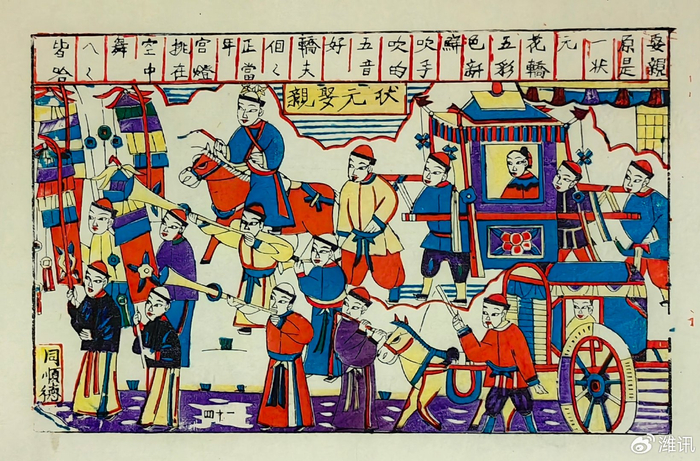 娶親
原是
一状
元
花轎
五彩
色新
鮮
吹手
吹的
五音
好
轎夫
個〻
正當
年
宮燈
挑在
空中
舞
人〻
皆
状元娶親
同順德
四十一
潍讯